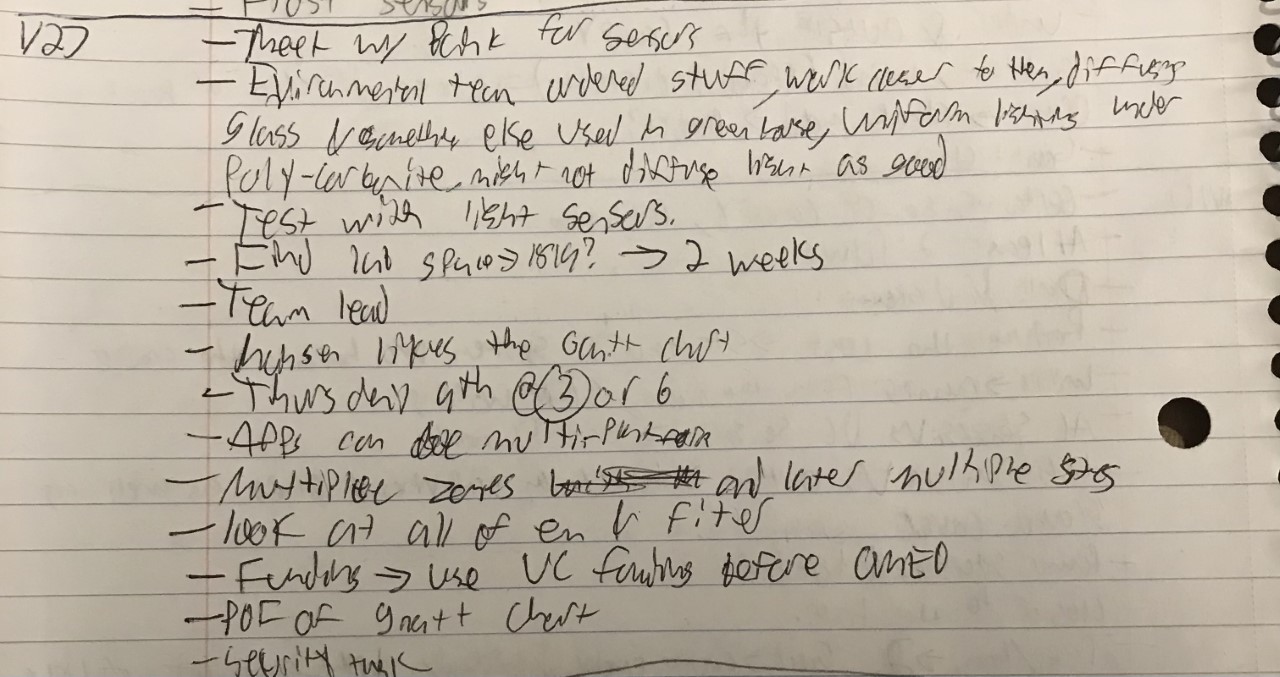 V2)
- Meet w/ for sensors
- Environmental team ordered stuff, work closer to them, diffusing
glass & something else used in greenhouse, uniform lighting under
Poly-carbonite, might not diffuse light as good
- Test with light sensors.
- Find lab space → 1819? → 2 weeks
- Team lead
- likes the Gantt chart
- Thursday 9th @ (3) or 6
- APPs can be
- Multiple zones and later multiple
- look at all of
- Funding → use UC funding before
- PDF of gnatt chart
- Security task